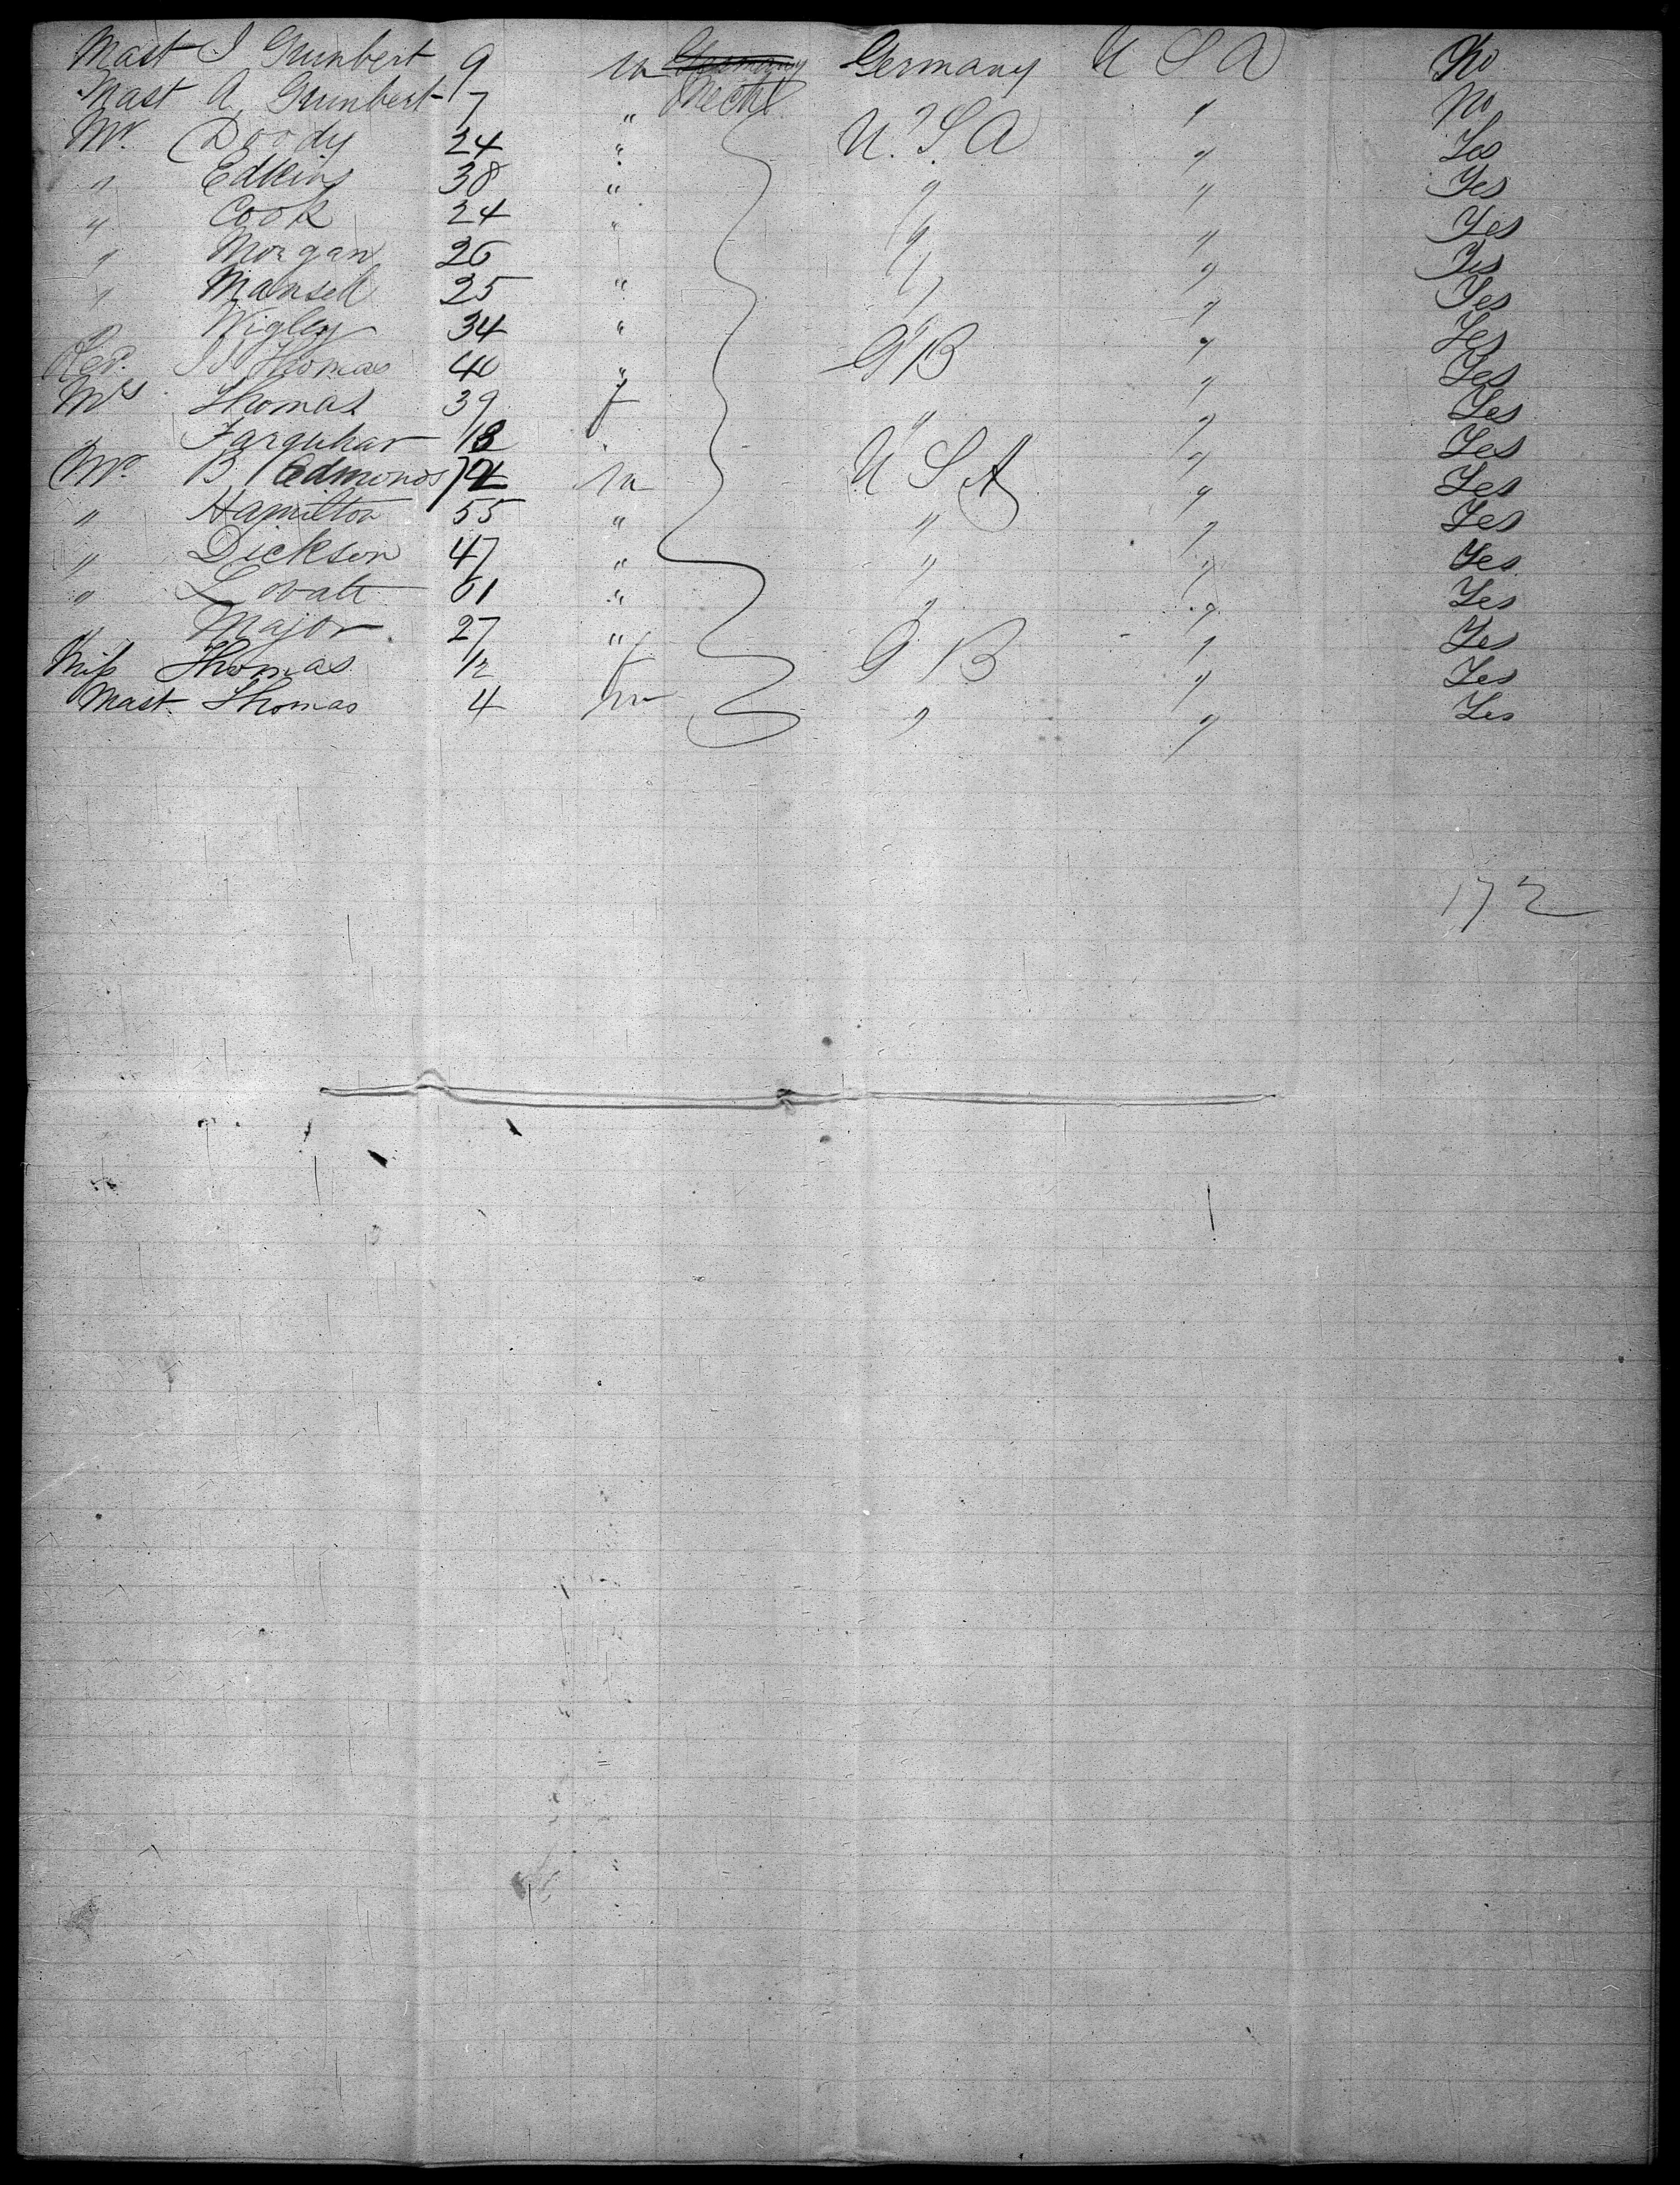 Mast I Grunbert 9 m Germany Germany U S A No
Mast A Grunbert 7 " Mecht " No
Mr. Doody 24 " U.S.A " Yes
" Edkins 38 " " " Yes
" Cook 24 " " " Yes
" Morgan 26 " " Yes
" Mansell 25 " " " Yes
Wigley 34 " " " Yes
Rev. Thomas 40 " G B " Yes
Mrs Thomas 39 f " " Yes
Farquhar 18 " " Yes
Mr. B Edmonds m U S A " Yes
" Hamilton 55 " " " Yes
" Dickson 47 " " " Yes
" Lovatt 61 " " " Yes
" Major 27 " G B " Yes
Miss Thomas f " Yes
Mast. Thomas 4 m " " Yes
172